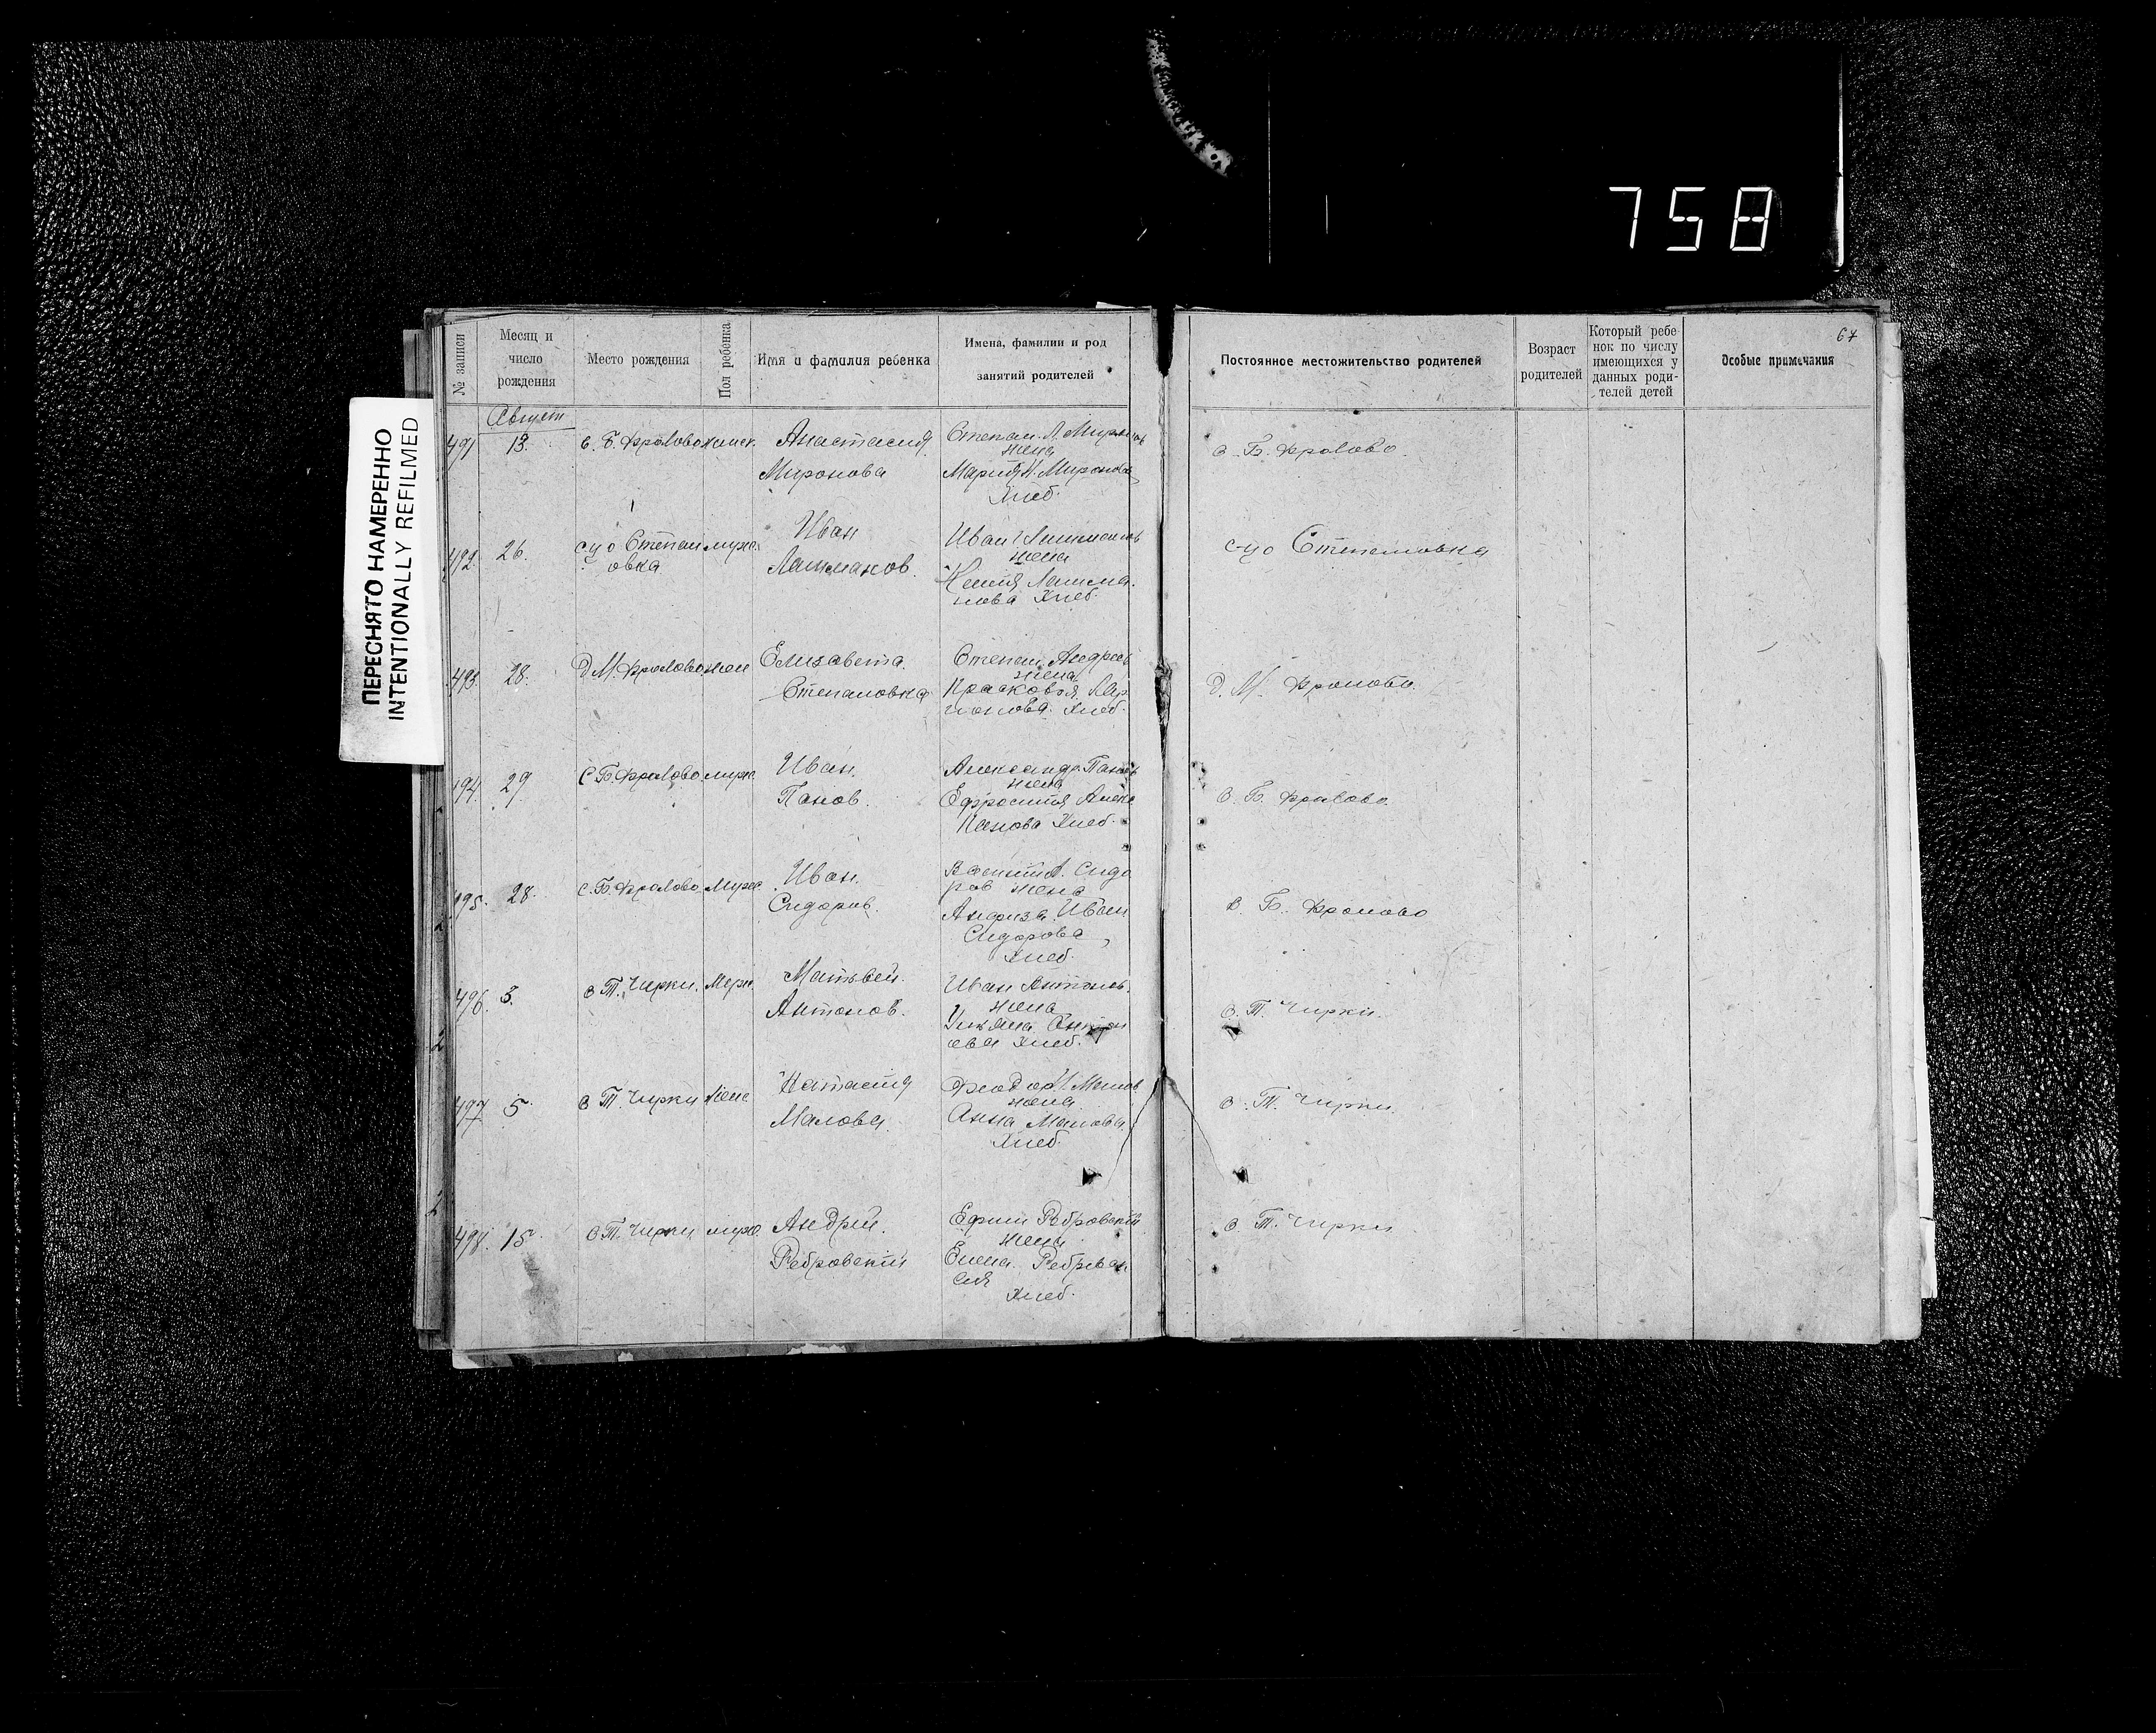 758
ПЕРЕСНЯТО НАМЕРЕННО
INTENTIONALLY REFILMED
67
№ записи
Месяц и
число
рождения
Место рождения
Пол ребенка
Имя и фамилия ребенка
Имена, фамилии и род
занятий родителей
Постоянное местожительство родителей
Возраст
родителей
Который ребе-
нок по числу
имеющихся у
данных роди-
телей детей
Особые примечания
Август
491 13. с. Б. Фролово женск. Анастасия Степан Л. Миронов
жена
Миронова Мария Н. Миронова
Хлеб.
с. Б. Фролово.
492. 26. Степан муж. Иван Иван
овка жена
Лашманов. Лашма
нова Хлеб.
Степановка
493. 28. Д М. Фролово жен Елизавета Степан Андреев
жена
Степановна Прасковья
Хлеб.
д. М. Фролово.
494. 29 С Б. Фролово муж Иван. Александр Панов
жена
Панов. Ефросиния Алекс
Панова Хлеб.
с. Б. Фролово.
495. 28. с. Б. Фролово Муж. Иван. Сидо
ров жена
Сидоров. Анфиза Иван
Сидорова
Хлеб.
с. Б. Фролово
496. 3. с Т. Чирки. Муж. Матвей. Иван Антонов.
жена
Антонов. Ульяна Антон
ова Хлеб.
с. Т. Чирки.
497 5. с Т. Чирки Жен Натасия Феодор И Малов
жена
Малова. Анна Малова
Хлеб.
с. Т. Чирки.
498. 15. с Т. Чирки муж. Андрей. Ефим Ребровский
жена
Ребровский Елена Ребровск
ая
Хлеб.
с. Т. Чирки